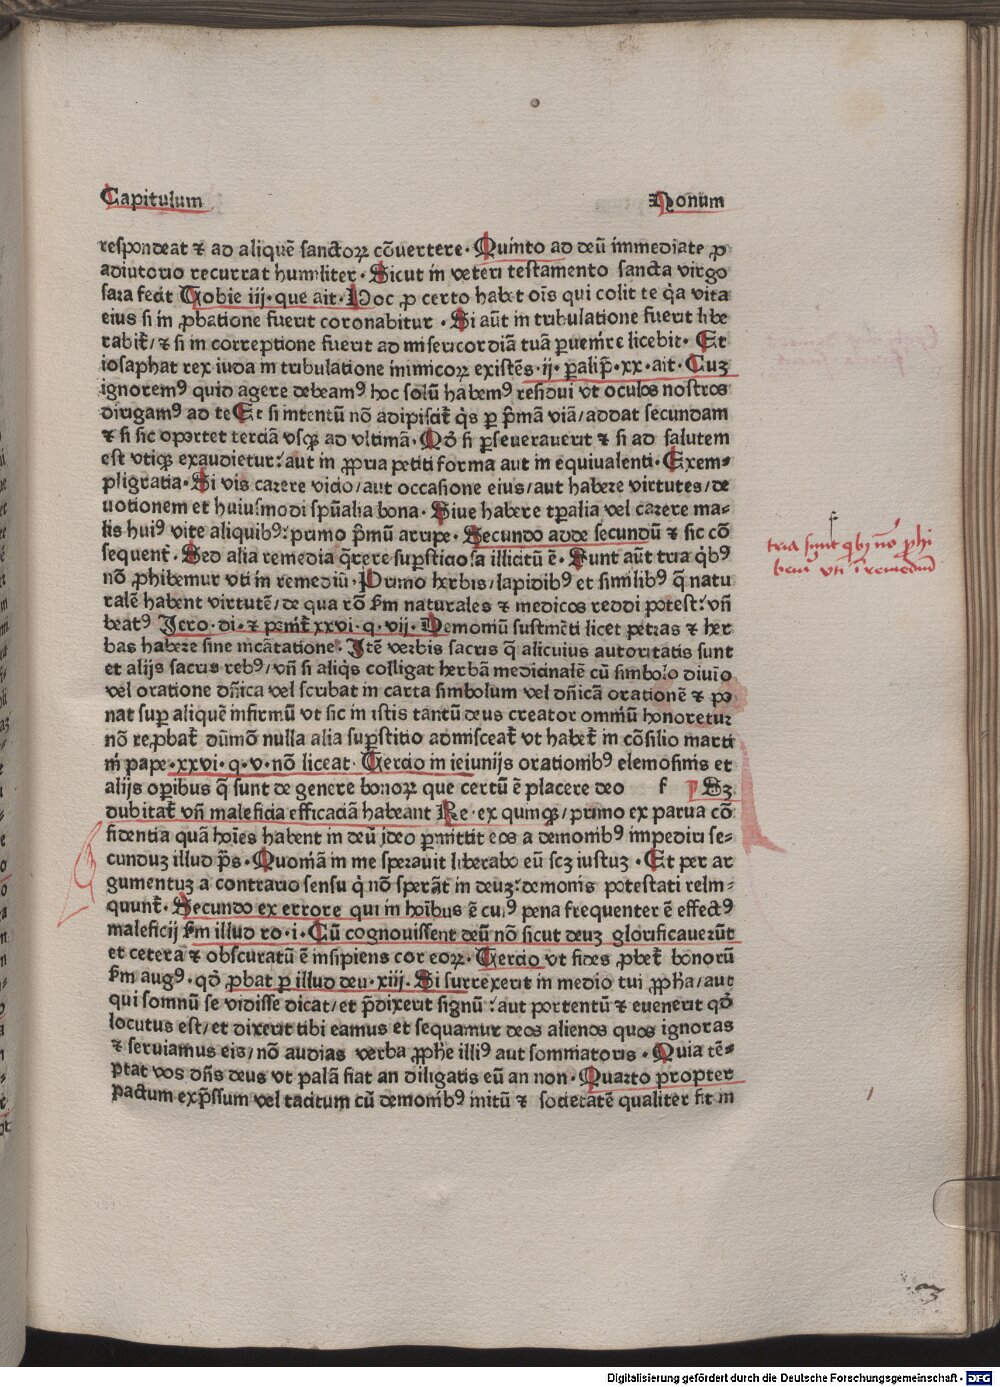 Capitulum Nonum
respondeat ⁊ ad aliquē sanctoꝝ cōuertere. Quinto ad deū immediate ꝓ
adiutorio recurrat humiliter. Sicut in veteri testamento sancta virgo
sara fecit Tobie iij. que ait. Hoc ꝓ certo habet oīs qui colit te qꝛ vita
eius si in ꝓbatione fuerit coronabitur. Si aūt in tribulatione fuerit libe
rabit̄/ ⁊ si in correptione fuerit ad misericordiā tuā ꝑuenir̄e licebit. Et
iosaphat rex iuda in tribulatione inimicoꝝ existēs. ij. ꝑalip̄. xx. ait. Cuꝫ
ignoremꝰ quid agere debeamꝰ hoc solū habemꝰ residui vt oculos nostros
dirigamꝰ ad te Et si intentū nō adipiscit̄ q̇s ꝑ p̄mā viā/ addat secundam
⁊ si sic oportet terciā vsqꝫ ad vltimā. Qō si ꝑseuerauerit ⁊ si ad salutem
est vtiqꝫ exaudietur: aut in ꝓpria petiti forma aut in equiualenti. Exem⸗
pli gratia. Si vis carere vicio/ aut occasione eius/ aut habere virtutes/ de
uotionem et huiusmodi spūalia bona. Siue habere tꝑalia vel carere ma⸗
lis huiꝰ vite aliquibꝰ: primo p̄mū arripe. Secundo adde secundū ⁊ sic cō
sequent̄. Sed alia remedia q̄rere suꝑsticiosa illicitū ē. Sunt aūt tria q̇bꝰ
nō ꝓhibemur vti in remediū. Primo herbis/ lapidibꝰ et similibꝰ q̄ natu
ralē habent virtutē/ de qua rō ẜm naturales ⁊ medicos reddi potest: vn̄
beatꝰ Jero. di. ⁊ ponit̄ xxvi. q. vij. Demoniū sustinēti licet petras ⁊ her
bas habere sine incātatione. Itē verbis sacris q̄ alicuius autoritatis sunt
et alijs sacris rebꝰ/ vn̄ si aliq̇s colligat herbā medicinalē cū simbolo diuīo
vel oratione dn̄ica vel scribat in carta simbolum vel dn̄icā orationē ⁊ po
nat suꝑ aliquē infirmū vt sic in istis tantū deus creator omniū honoretur
nō reꝓbat̄ dūmō nulla alia suꝑstitio admisceat̄ vt habet̄ in cōsilio marti
ni pape. xxvi. q. v. nō liceat. Tercio in ieiunijs orationibꝰ elemosinis et
alijs oꝑibus q̄ sunt de genere bonoꝝ que certū ē placere deo f Sꝫ
dubitat̄ vn̄ maleficia efficaciā habeant Re. ex quinqꝫ/ primo ex parua cō
fidentia quā hoīes habent in deū ideo ꝑmittit eos a demonibꝰ impediri se⸗
cunduꝫ illud p̄s. Quoniā in me sperauit liberabo eū scꝫ iustuꝫ. Et per ar
gumentuꝫ a contrario sensu q̇ nō sperāt in deuꝫ: demonis potestati relin⸗
quunt̄. Secundo ex errore qui in hoībus ē cuiꝰ pena frequenter ē effectꝰ
maleficij ẜm illud ro. i. Cū cognouissent deū nō sicut deuꝫ glorificauerūt
et cetera ⁊ obscuratū ē insipiens cor eoꝝ. Tercio vt fides ꝓbet̄ bonorū
ẜm augꝰ. qō ꝓbat ꝑ illud deu. xiij. Si surrexerit in medio tui ꝓpha/ aut
qui somnū se vidisse dicat/ et p̄dixerit signū: aut portentū ⁊ euenerit qō
locutus est/ et dixerit tibi eamus et sequamur deos alienos quos ignoras
⁊ seruiamus eis/ nō audias verba ꝓphe illiꝰ aut somniatoris. Quia tē⸗
ptat vos dn̄s deus vt palā fiat an diligatis eū an non. Quarto propter
pactum exp̄ssum vel tacitum cū demonibꝰ initū ⁊ societatē qualiter fit in
tria sunt qbꝫ nō ꝓhi
bem̄ vti ī remediū
Digitalisierung gefördert durch die Deutsche Forschungsgemeinschaft - DFG